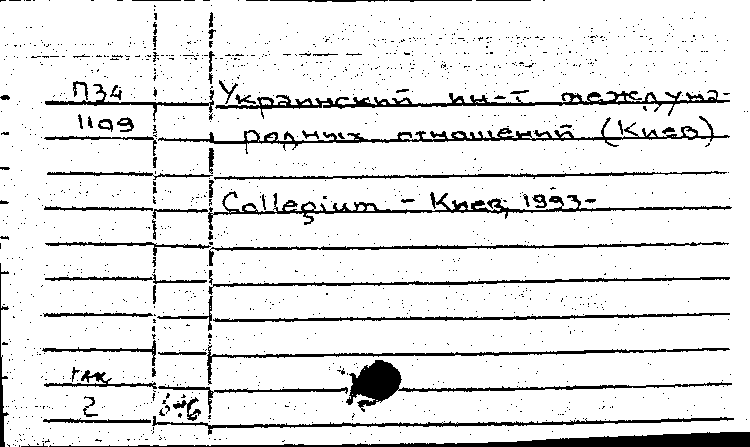 П34 Украинский ин-т междуна-
1109 родных отношений (Киев)
Collegium - Киев, 1993-
2